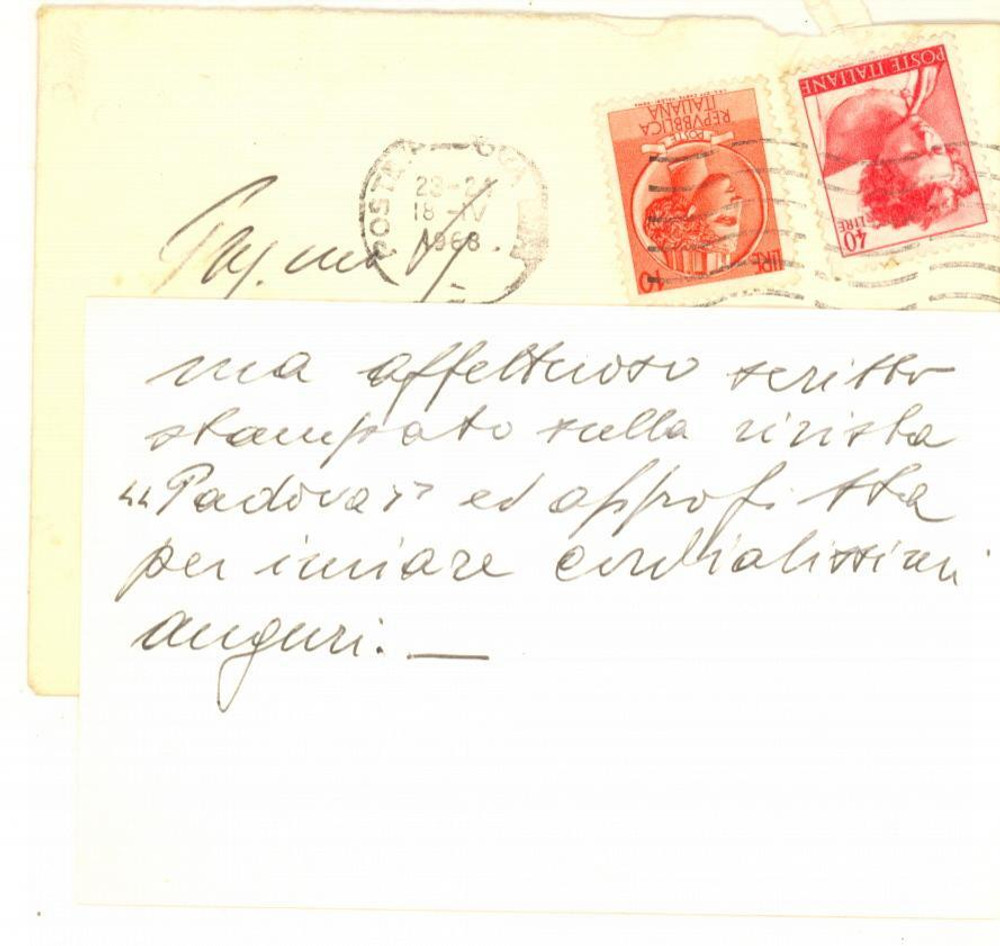 POSTE ITALIANE
REPVBBLICA
ITALIANA
POSTE
LIRE 10
LIRE 40
POSTA
23-24
18-IV
1968
ma affettuoso scritto
stampato sulla rivista
“Padova” ed approfitta
per inviare cordialissimi
auguri. —